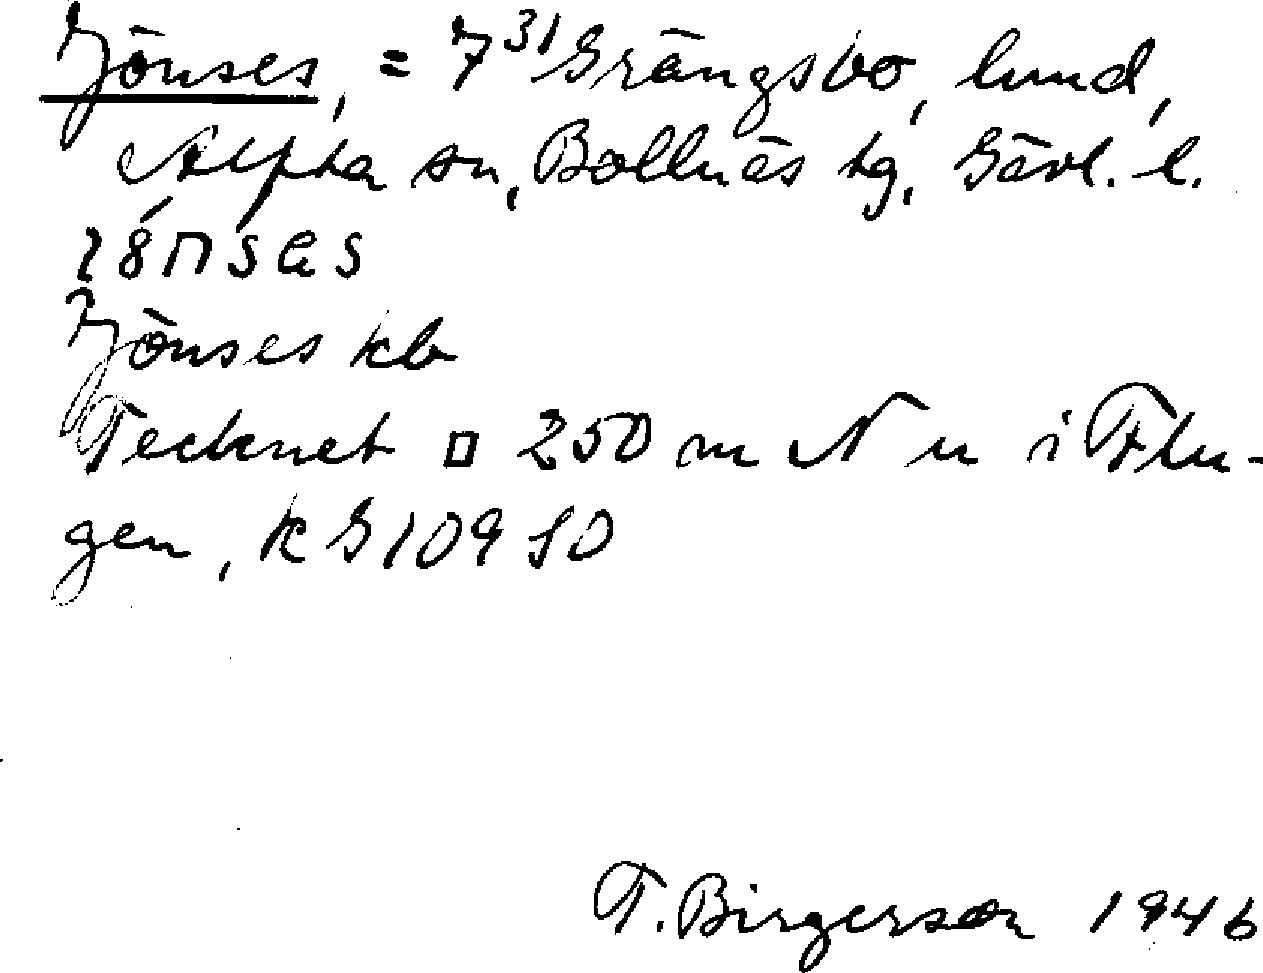 Jönses, = 7³¹ Grängsbo, lund,
Alfta sn, Bollnäs tg, Gävl. l.
Jönses kb
Tecknet □ 250 m N u i Flu-
gen, k G 109 SO
T. Birgerson 1946